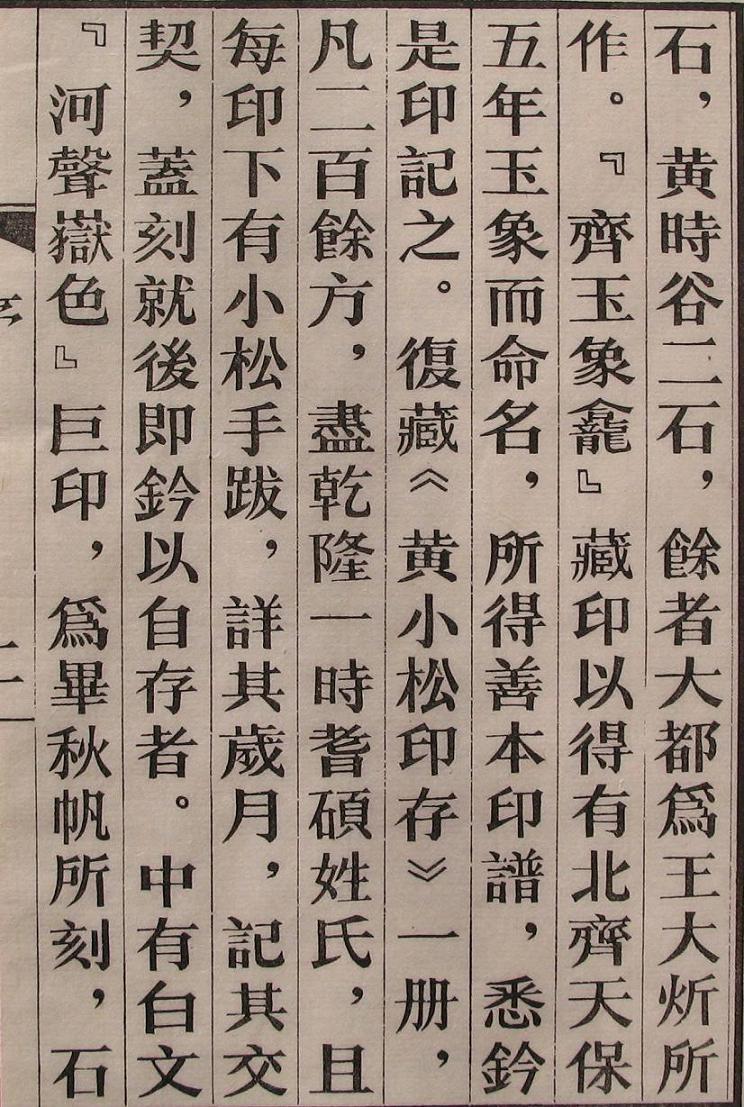 石，黄時谷二石，餘者大都爲王大炘所
作。『齊玉象龕』藏印以得有北齊天保
五年玉象而命名，所得善本印譜，悉鈐
是印記之。復藏《黄小松印存》一册，
凡二百餘方，盡乾隆一時耆碩姓氏，且
每印下有小松手跋，詳其歲月，記其交
契，蓋刻就後即鈐以自存者。中有白文
『河聲嶽色』巨印，爲畢秋帆所刻，石
二